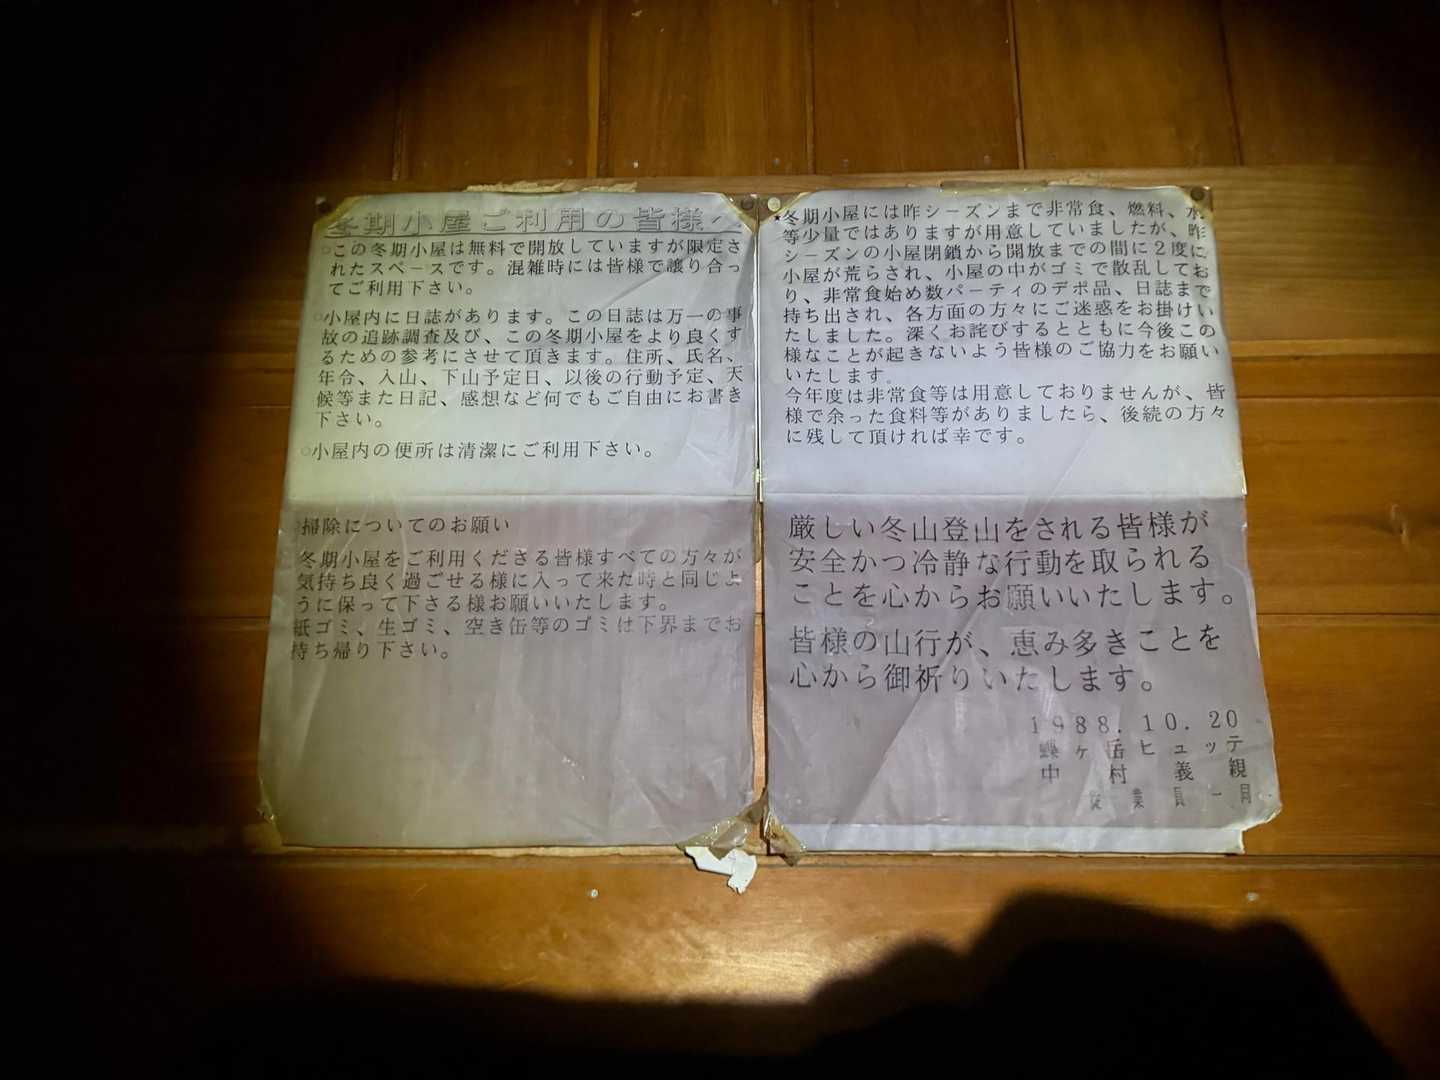 冬期小屋ご利用の皆様へ
○この冬期小屋は無料で開放していますが限定さ
れたスペースです。混雑時には皆様で譲り合っ
てご利用下さい。
○小屋内に日誌があります。この日誌は万一の事
故の追跡調査及び、この冬期小屋をより良くす
るための参考にさせて頂きます。住所、氏名、
年令、入山、下山予定日、以後の行動予定、天
候等また日記、感想など何でもご自由にお書き
下さい。
○小屋内の便所は清潔にご利用下さい。
○掃除についてのお願い
冬期小屋をご利用くださる皆様すべての方々が
気持ち良く過ごせる様に入って来た時と同じよ
うに保って下さる様お願いいたします。
紙ゴミ、生ゴミ、空き缶等のゴミは下界までお
持ち帰り下さい。
★冬期小屋には昨シーズンまで非常食、燃料、水
等少量ではありますが用意していましたが、昨
シーズンの小屋閉鎖から開放までの間に2度に
小屋が荒らされ、小屋の中がゴミで散乱してお
り、非常食始め数パーティのデポ品、日誌まで
持ち出され、各方面の方々にご迷惑をお掛けい
たしました。深くお詫びするとともに今後この
様なことが起きないよう皆様のご協力をお願い
いたします。
今年度は非常食等は用意しておりませんが、皆
様で余った食料等がありましたら、後続の方々
に残して頂ければ幸です。
厳しい冬山登山をされる皆様が
安全かつ冷静な行動を取られる
ことを心からお願いいたします。
皆様の山行が、恵み多きことを
心から御祈りいたします。
1988.10.20
蝶ヶ岳ヒュッテ
中村義親
従業員一同